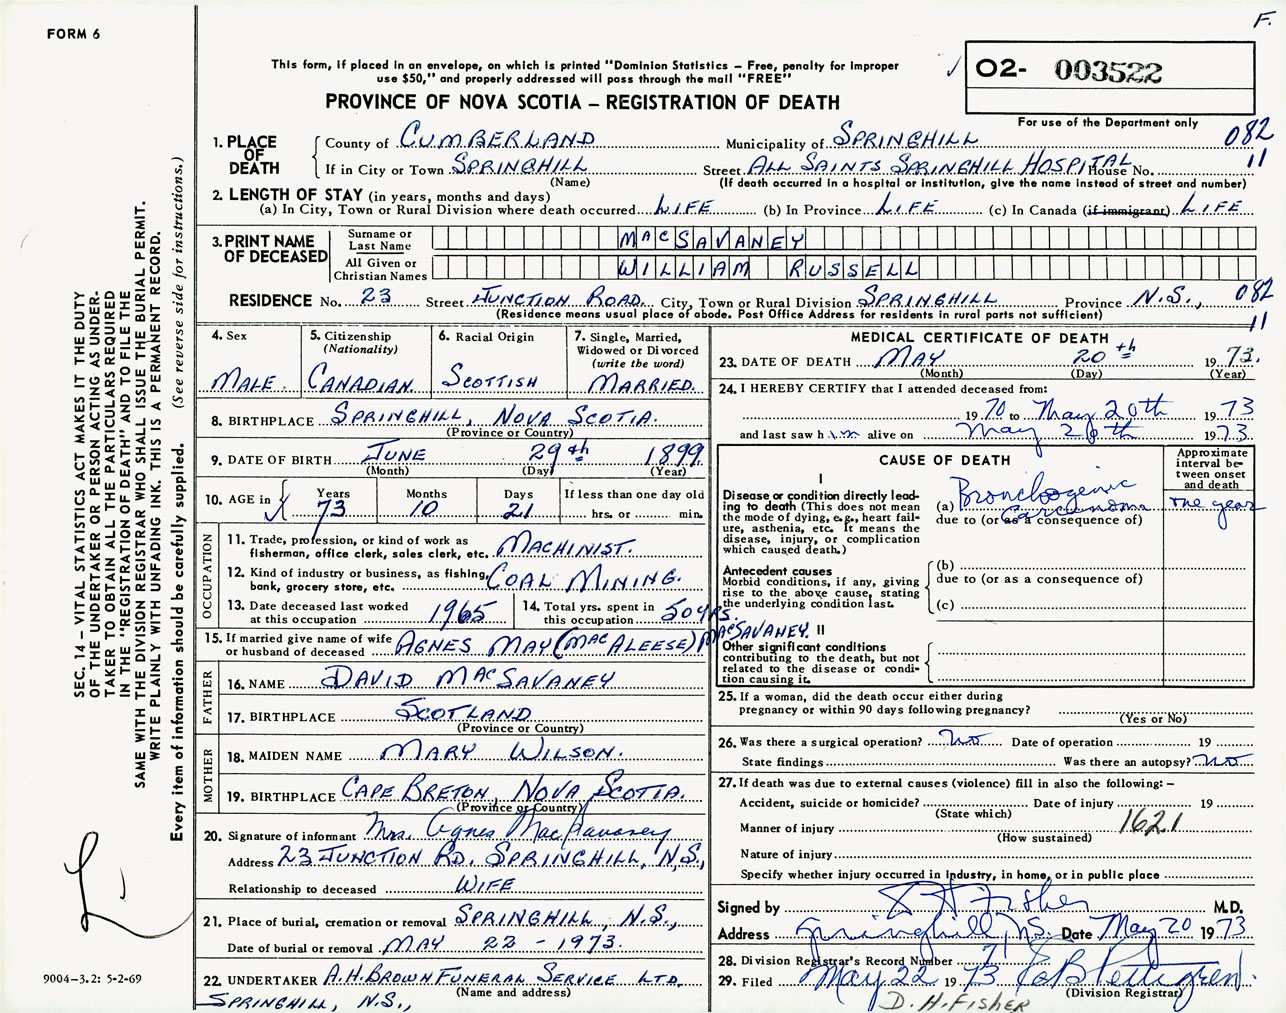 F.
FORM 6
This form, if placed in an envelope, on which is printed "Dominion Statistics – Free, penalty for improper
use $50," and properly addressed will pass through the mail "FREE"
PROVINCE OF NOVA SCOTIA – REGISTRATION OF DEATH
02- 003522
For use of the Department only
1. PLACE OF DEATH
County of CUMBERLAND Municipality of SPRINGHILL 082
If in City or Town SPRINGHILL Street ALL SAINTS SPRINGHILL HOSPITAL House No. 11
(Name) (If death occurred in a hospital or institution, give the name instead of street and number)
2. LENGTH OF STAY (in years, months and days)
(a) In City, Town or Rural Division where death occurred LIFE (b) In Province LIFE (c) In Canada (if immigrant) LIFE
3. PRINT NAME OF DECEASED
Surname or Last Name MACSAVANEY
All Given or Christian Names WILLIAM RUSSELL
RESIDENCE No. 23 Street JUNCTION ROAD City, Town or Rural Division SPRINGHILL Province N.S., 082
(Residence means usual place of abode. Post Office Address for residents in rural parts not sufficient) 11
4. Sex
MALE
5. Citizenship
(Nationality)
CANADIAN
6. Racial Origin
SCOTTISH
7. Single, Married,
Widowed or Divorced
(write the word)
MARRIED
8. BIRTHPLACE SPRINGHILL, NOVA SCOTIA.
(Province or Country)
9. DATE OF BIRTH JUNE 29th 1899
(Month) (Day) (Year)
10. AGE in
Years 73
Months 10
Days 21
If less than one day old
hrs. or min.
OCCUPATION
11. Trade, profession, or kind of work as
fisherman, office clerk, sales clerk, etc. MACHINIST.
12. Kind of industry or business, as fishing,
bank, grocery store, etc. COAL MINING.
13. Date deceased last worked
at this occupation 1965
14. Total yrs. spent in
this occupation 50 YRS.
15. If married give name of wife
or husband of deceased AGNES MAY (MACALEESE) MACSAVANEY.
FATHER
16. NAME DAVID MACSAVANEY
17. BIRTHPLACE SCOTLAND
(Province or Country)
MOTHER
18. MAIDEN NAME MARY WILSON.
19. BIRTHPLACE CAPE BRETON, NOVA SCOTIA.
(Province or Country)
20. Signature of informant Mrs. Agnes MacSavaney
Address 23 JUNCTION RD. SPRINGHILL, N.S.,
Relationship to deceased WIFE
21. Place of burial, cremation or removal SPRINGHILL, N.S.,
Date of burial or removal MAY 22 - 1973.
22. UNDERTAKER A.H. BROWN FUNERAL SERVICE LTD.
(Name and address)
SPRINGHILL, N.S.,
MEDICAL CERTIFICATE OF DEATH
23. DATE OF DEATH MAY 20th 1973.
(Month) (Day) (Year)
24. I HEREBY CERTIFY that I attended deceased from:
1970 to May 20th 1973
and last saw him alive on May 20th 1973
CAUSE OF DEATH
Approximate
interval be-
tween onset
and death
I
Disease or condition directly lead-
ing to death (This does not mean
the mode of dying, e.g., heart fail-
ure, asthenia, etc. It means the
disease, injury, or complication
which caused death.)
(a) Bronchogenic Carcinoma
due to (or as a consequence of)
one year
Antecedent causes
Morbid conditions, if any, giving
rise to the above cause, stating
the underlying condition last.
(b)
due to (or as a consequence of)
(c)
II
Other significant conditions
contributing to the death, but not
related to the disease or condi-
tion causing it.
25. If a woman, did the death occur either during
pregnancy or within 90 days following pregnancy?
(Yes or No)
26. Was there a surgical operation? No Date of operation 19
State findings Was there an autopsy? No
27. If death was due to external causes (violence) fill in also the following: –
Accident, suicide or homicide? Date of injury 19
(State which)
Manner of injury 1621
(How sustained)
Nature of injury
Specify whether injury occurred in industry, in home, or in public place
Signed by D H Fisher M.D.
Address Springhill, N.S. Date May 20 1973
28. Division Registrar's Record Number 71
29. Filed May 22 1973
(Division Registrar)
D.H. FISHER
SEC. 14 – VITAL STATISTICS ACT MAKES IT THE DUTY
OF THE UNDERTAKER OR PERSON ACTING AS UNDER-
TAKER TO OBTAIN ALL THE PARTICULARS REQUIRED
IN THE "REGISTRATION OF DEATH" AND TO FILE THE
SAME WITH THE DIVISION REGISTRAR WHO SHALL ISSUE THE BURIAL PERMIT.
WRITE PLAINLY WITH UNFADING INK. THIS IS A PERMANENT RECORD.
Every item of information should be carefully supplied. (See reverse side for instructions.)
9004-3.2: 5-2-69